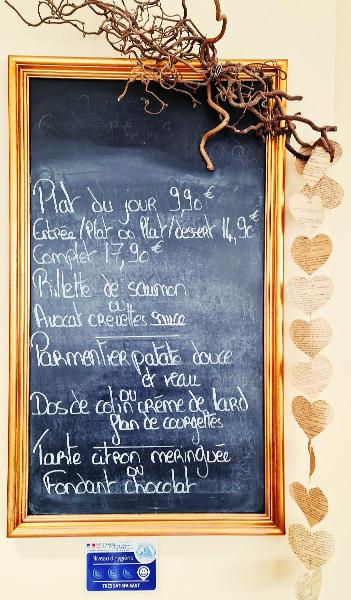 Plat du jour 9,90€
Entrée/Plat ou Plat/dessert 14,90€
Complet 17,90€
Rillette de saumon
ou
Avocat crevettes sauce
Parmentier patate douce
et veau
ou
Dos de colin crème de lard
flan de courgettes
Tarte citron meringuée
ou
Fondant chocolat
Niveau d'hygiène
TRÈS SATISFAISANT